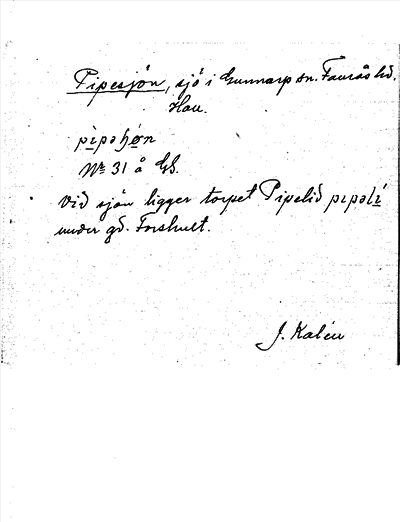 Pipesjön, sjö i Gunnarp sn. Faurås hd.
Hall.
pìpəɧø̀n
№ 31 å GK.
Vid sjön ligger torpet Pipelid pɩpəlí
under gd. Forshult.
J. Kalén